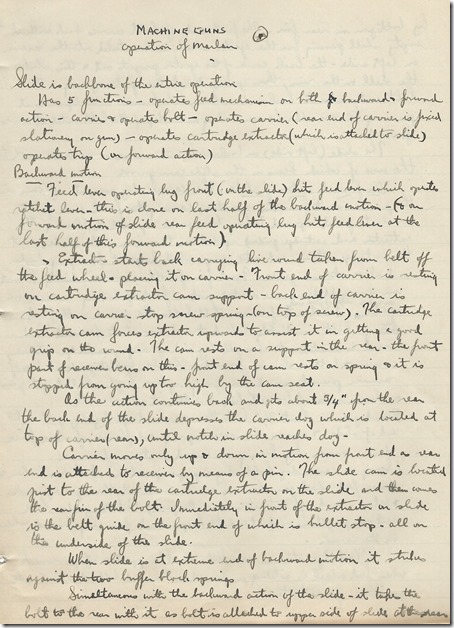 MACHINE GUNS
operation of Marlin
Slide is backbone of the entire operation
Has 5 functions - operates feed mechanism on both backward & forward
action - carries & operates bolt - operates carrier (rear end of carrier is fixed
stationary on gun) - operates cartridge extractor (which is attached to slide)
operates trip (on forward action)
Backward motion
Feed lever operating lug front (on the slide) hits feed lever which operates
ratchet lever - this is done on last half of the backward motion - (& on
forward motion of slide rear feed operating lug hits feed lever at the
last half of this forward motion)
Extractor starts back carrying live round taken from belt off
the feed wheel & placing it on carrier - Front end of carrier is resting
on cartridge extractor cam support - back end of carrier is
resting on carrier stop screw spring - (on top of screw). The cartridge
extractor cam forces extractor upwards to assist it in getting a good
grip on the round. The cam rests on a support in the rear - the front
part of receiver bears on this - front end of cam rests on spring & it is
stopped from going up too high by the cam seat.
As the action continues back and gets about 3/4" from the rear
the back end of the slide depresses the carrier dog which is located at
top of carrier (rear), until notch in slide reaches dog -
Carrier moves only up & down in motion from front end as rear
end is attached to receiver by means of a pin. The slide cam is located
just to the rear of the cartridge extractor on the slide and then comes
the rear pin of the bolt. Immediately in front of the extractor on slide
is the belt guide on the front end of which is bullet stop - all on
the underside of the slide.
When slide is at extreme end of backward motion it strikes
against the two buffer block springs
Simultaneous with the backward action of the slide - it takes the
bolt to the rear with it as bolt is attached to upper side of slide at the rear